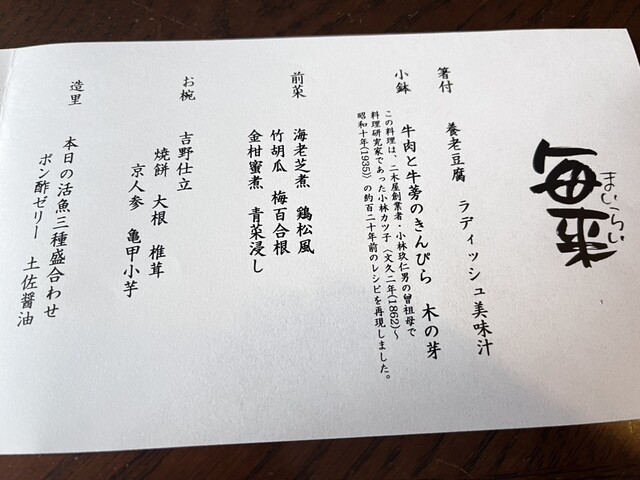 毎来
まいらい
箸付　養老豆腐　ラディッシュ美味汁
小鉢　牛肉と牛蒡のきんぴら　木の芽
この料理は、二木屋創業者・小林玖仁男の曾祖母で
料理研究家であった小林カツ子（文久二年(1862)〜
昭和十年(1935)）の約百二十年前のレシピを再現しました。
前菜　海老芝煮　鶏松風
竹胡瓜　梅百合根
金柑蜜煮　青菜浸し
お椀　吉野仕立
焼餅　大根　椎茸
京人参　亀甲小芋
造里　本日の活魚三種盛合わせ
ポン酢ゼリー　土佐醤油